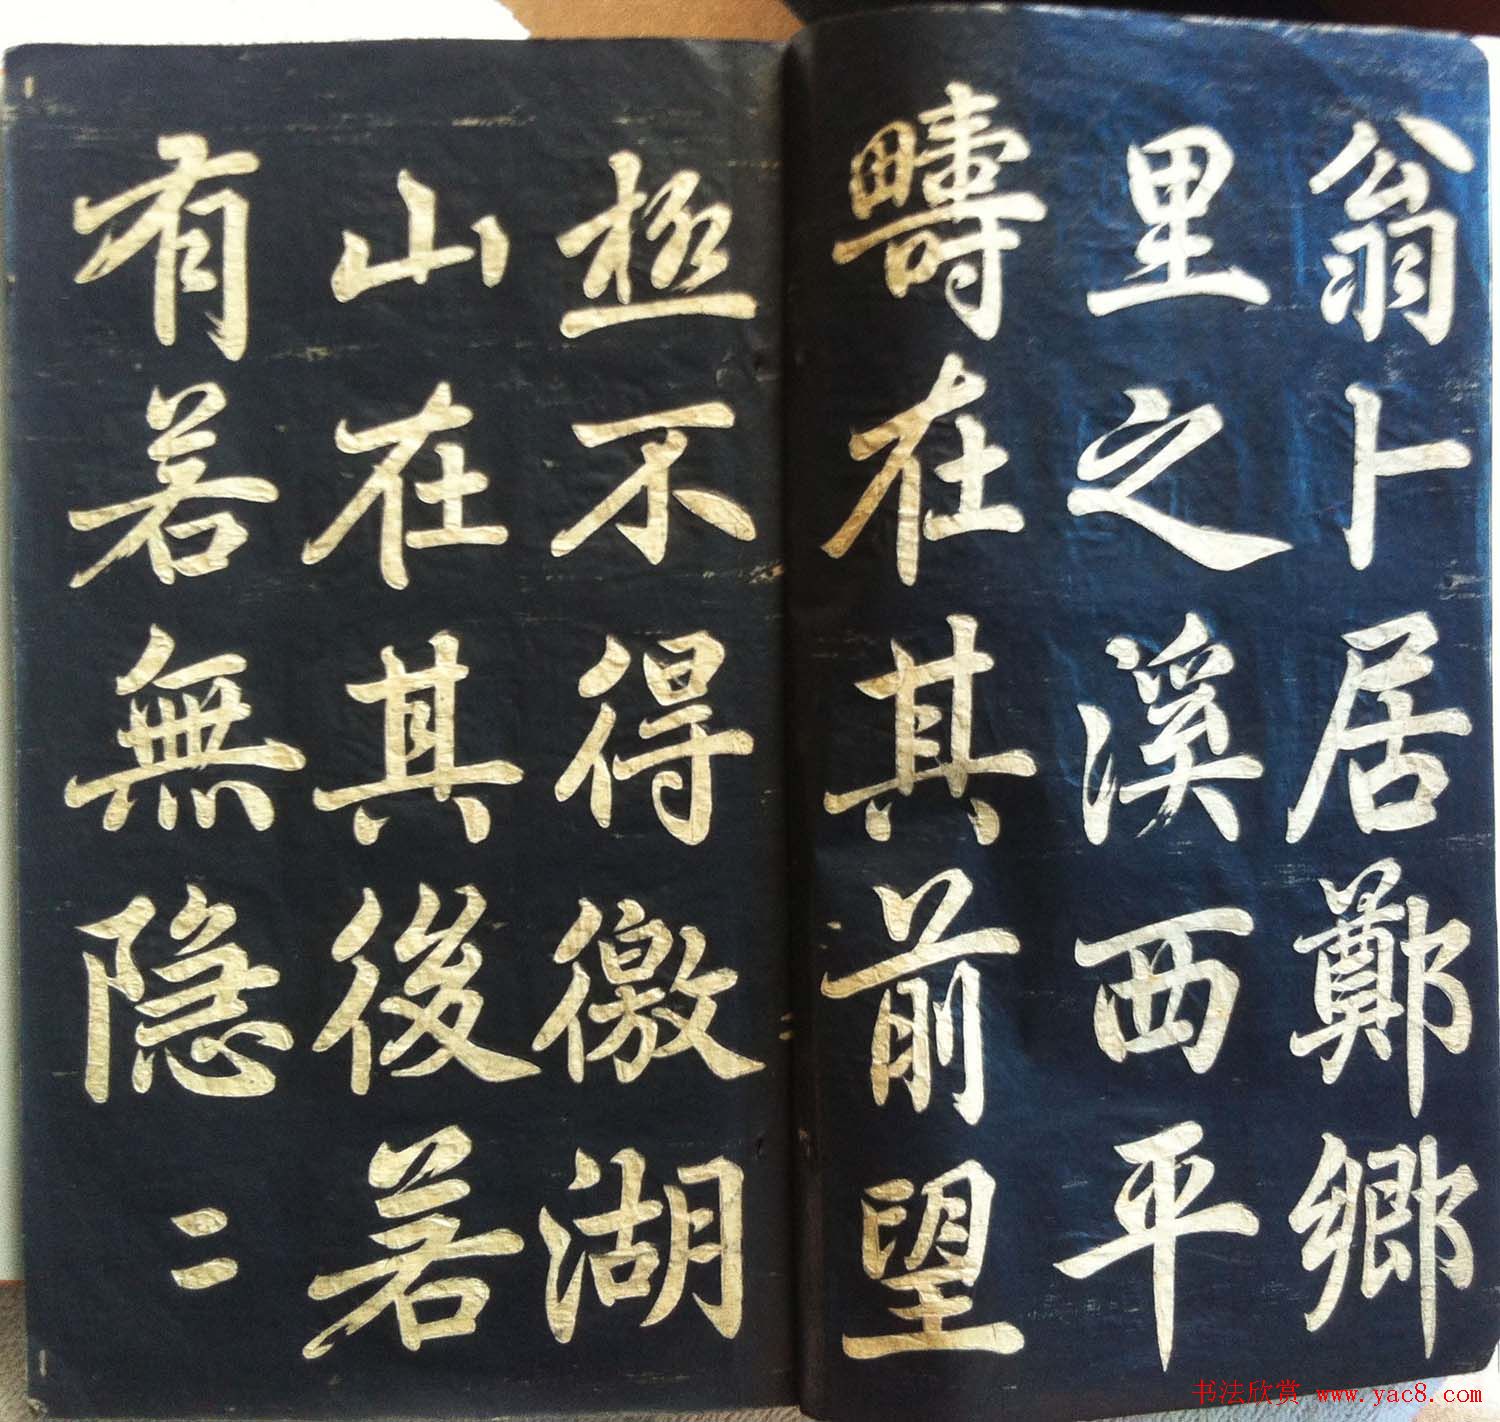 翁卜居鄭鄉
里之溪西平
疇在其前望
極不得徼湖
山在其後若
有若無隐二
书法欣赏 www.yac8.com